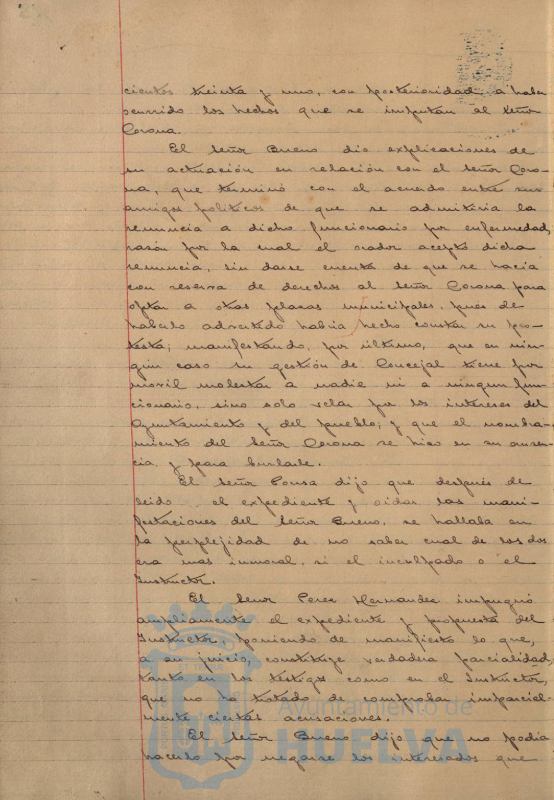 cientos treinta y uno, con posterioridad a haber
ocurrido los hechos que se imputan al Señor
Corona.
El Señor Bueno dio explicaciones de
su actuación en relación con el Señor Coro-
na, que terminó con el acuerdo entre sus
amigos políticos de que se admitiria la
renuncia a dicho funcionario por enfermedad,
razón por la cual el orador aceptó dicha
renuncia, sin darse cuenta de que se hacia
con reserva de derechos al Señor Corona para
optar a otras plazas municipales, pues de
haberlo advertido habia hecho constar su pro-
testa; manifestando, por último, que en nin-
gún caso su gestión de Concejal tiene por
movil molestar a nadie ni a ningun fun-
cionario, sino solo velar por los intereses del
Ayuntamiento y del pueblo; y que el nombra-
miento del Señor Corona se hizo en su ausen-
cia, y para burlarle.
El Señor Ponsa dijo que después de
leido el expediente y oidas las mani-
festaciones del Señor Bueno, se hallaba en
la perplejidad de no saber cual de los dos
era mas inmoral, si el inculpado o el
Instructor.
El Señor Perez Hernandez impugnó
ampliamente el expediente y propuesta del
Instructor, poniendo de manifiesto lo que,
a su juicio, constituye verdadera parcialidad,
tanto en los testigos como en el Instructor,
que no ha tratado de comprobar imparcial-
mente ciertas acusaciones.
El Señor Bueno dijo que no podia
hacerlo por negarse los interesados que
Ayuntamiento de
HUELVA